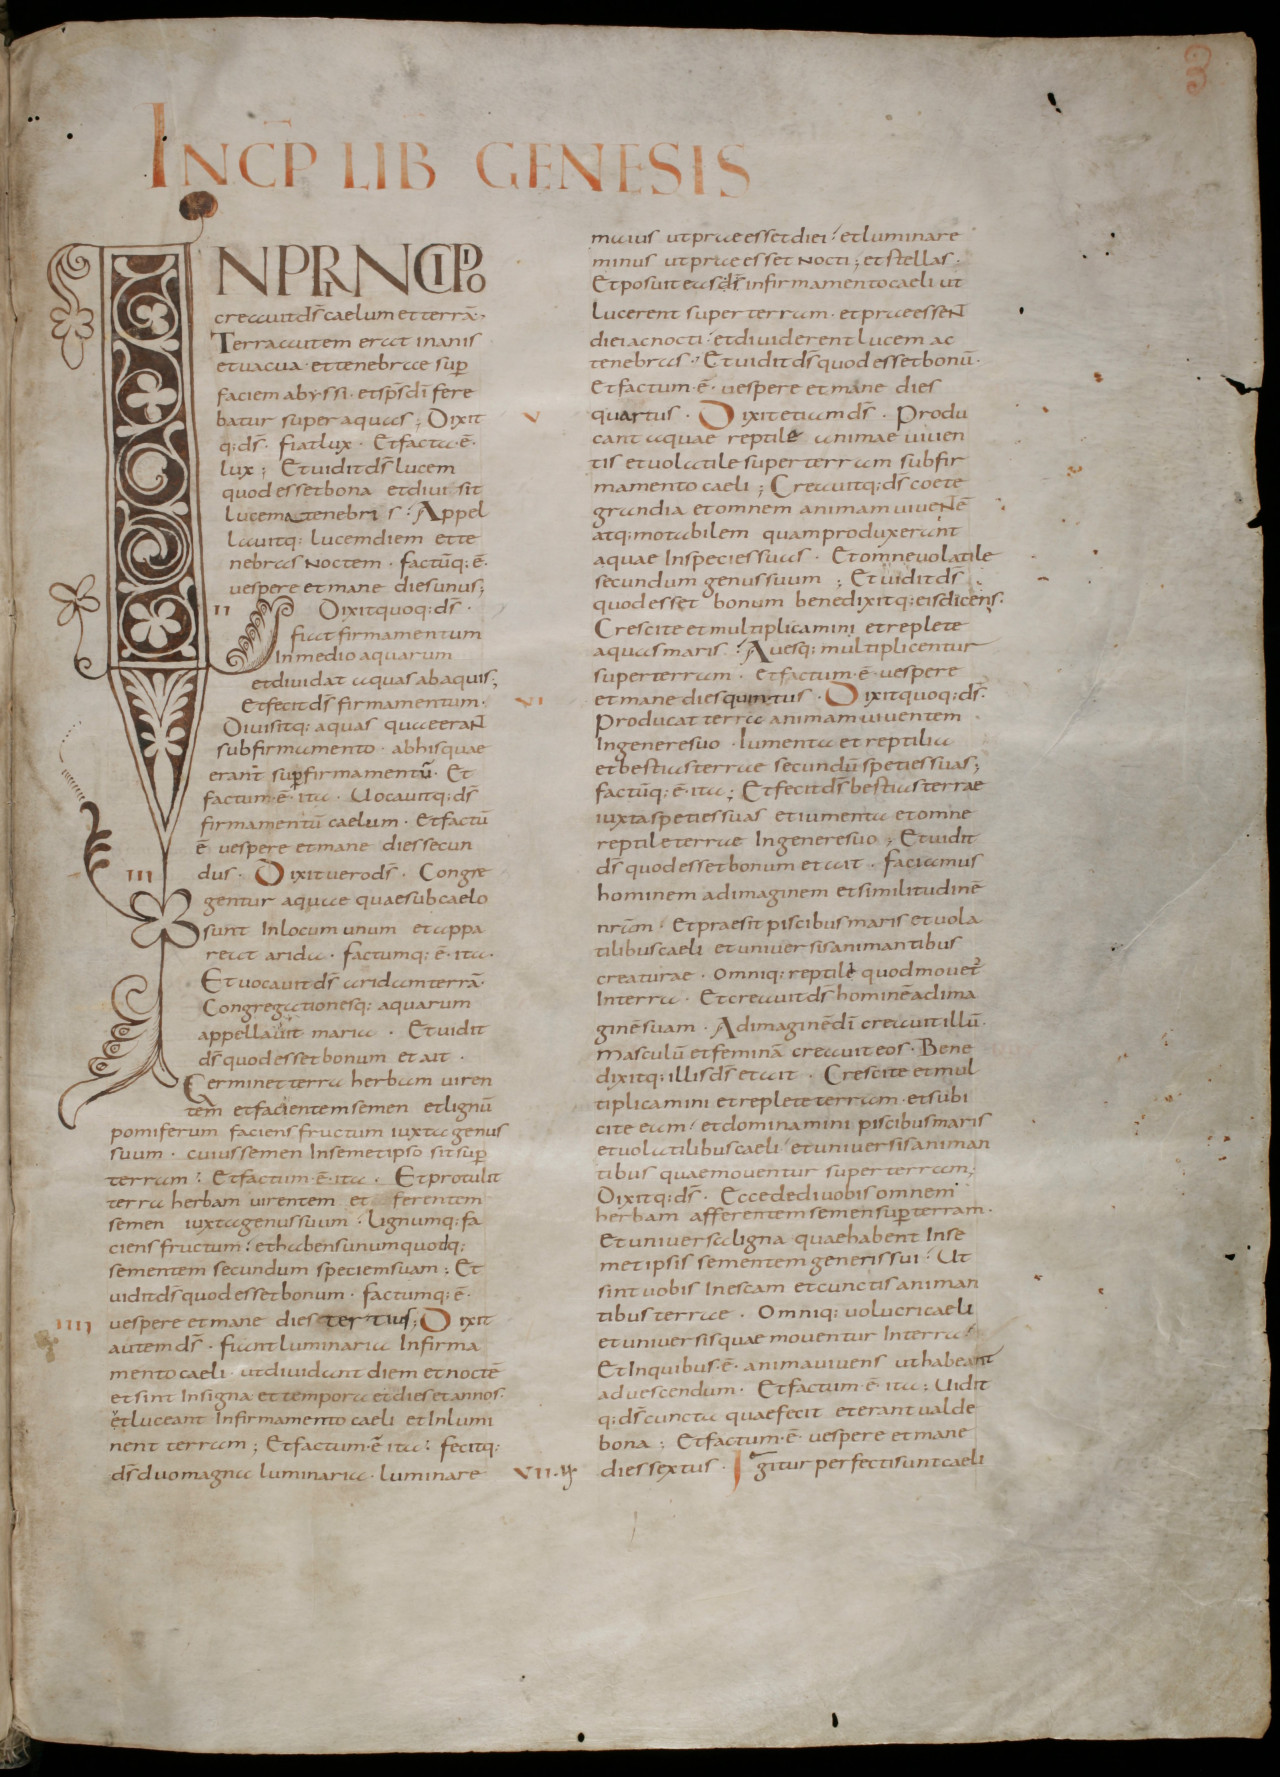 INCP̄ LIB GENESIS
IN PRINCIPIO
creauit dˉs caelum et terrā·,
Terra autem erat inanis
et uacua· et tenebrae sup̄
faciem abyssi· et sp̄s dī fere
batur super aquas; Dixit
q: dˉs· fiat lux· Et facta·ē·
lux; Et uidit dˉs lucem
quod esset bona et diui sit
lucem a tenebris: Appel
lauitq: lucem diem et te
nebras Noctem· factūq:·ē·
uespere et mane dies unus;
II Dixit quoq: dˉs·
fiat firmamentum
In medio aquarum
et diuidat aquas ab aquis;
Et fecit dˉs firmamentum·
Diuisitq: aquas quae eraNT
sub firmamento· ab his quae
erant sup̄ firmamentū· Et
factum·ē· ita· Uocauitq: dˉs
firmamentū caelum· Et factū
ē uespere et mane dies secun
III dus· Dixit uero dˉs· Congre
gentur aquae quae sub caelo
sunt In locum unum et appa
reat arida· factumq:·ē· ita·
Et uocauit dˉs aridam terrā·
Congregationesq: aquarum
appellauit maria· Et uidit
dˉs quod esset bonum et ait·
Germinet terra herbam uiren
tem et facientem semen et lignū
pomiferum faciens fructum iuxta genus
suum· cuius semen In semetipso sit sup̄
terram: Et factum·ē· ita· Et protulit
terra herbam uirentem et ferentem
semen iuxta genus suum· lignumq: fa
ciens fructum: et habens unumquodq:
sementem secundum speciem suam; Et
uidit dˉs quod esset bonum· factumq:·ē·
IIII uespere et mane dies tertius; Dixit
autem dˉs· fiant luminaria In firma
mento caeli· ut diuidant diem et noctē
et sint In signa et tempora et dies et annos·
et luceant In firmamento caeli et Inlumi
nent terram; Et factum·ē ita: fecitq:
dˉs duo magna luminaria· luminare
maius ut praeesset diei: et luminare
minus ut praeesset Nocti; et stellas·
Et posuit eas dˉs in firmamento caeli ut
lucerent super terram· et praeesseNT
diei ac nocti: et diuiderent lucem ac
tenebras: Et uidit dˉs quod esset bonū·
Et factum·ē· uespere et mane dies
V quartus· Dixit etiam dˉs· Produ
cant aquae reptile animae uiuen
tis et uolatile super terram sub fir
mamento caeli; Creauitq: dˉs coete
grandia et omnem animam uiueNtē
atq: motabilem quam produxerant
aquae In species suas· Et omne uolatile
secundum genus suum; Et uidit dˉs
quod esset bonum benedixitq: eis dicens·
Crescite et multiplicamini et replete
aquas maris: Auesq: multiplicentur
super terram· et factum·ē· uespere
VI et mane dies quintus· Dixit quoq: dˉs·
Producat terra animam uiuentem
In genere suo· Iumenta et reptilia
et bestias terrae secundū speties suas;
factūq:·ē· ita; Et fecit dˉs bestias terrae
iuxta speties suas et iumenta et omne
reptile terrae In genere suo; Et uidit
dˉs quod esset bonum et ait· faciamus
hominem ad imaginem et similitudinē
nr̄am: Et praesit piscibus maris et uola
tilibus caeli et uniuersis animantibus
creaturae· Omniq: reptile quod mouet̄
In terra· Et creauit dˉs hominē ad ima
ginē suam· Ad imaginē dī creauit illū·
Masculū et feminā creauit eos· Bene
dixitq: illis dˉs et ait· Crescite et mul
tiplicamini et replete terram· et subi
cite eam: et dominamini piscibus maris
et uolatilibus caeli: et uniuersis animan
tibus quae mouentur super terram;
Dixitq: dˉs· Ecce dedi uobis omnem
herbam afferentem semen sup̄ terram·
Et uniuersa ligna quae habent In se
metipsis sementem generis sui: Ut
sint uobis In escam et cunctis animan
tibus terrae· Omniq: uolucri caeli
et uniuersis quae mouentur In terra:
Et In quibus·ē· anima uiuens ut habeant
ad uescendum· Et factum·ē· ita: Uidit
q: dˉs cuncta quae fecit et erant ualde
bona; Et factum·ē· uespere et mane
VII· dies sextus· Igitur perfecti sunt caeli